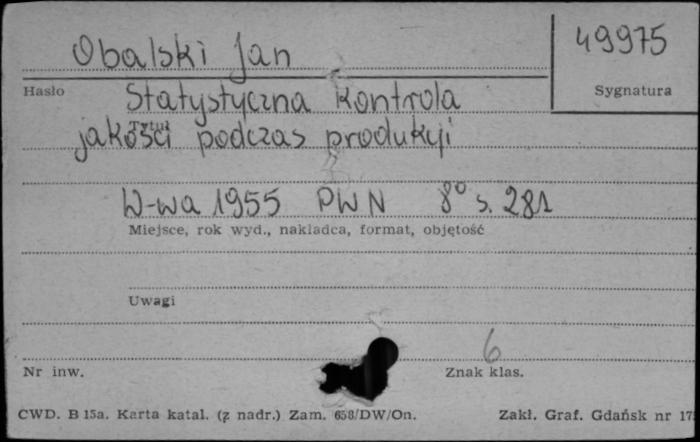 Obalski Jan
49975
Hasło
Sygnatura
Statystyczna kontrola
Tytuł
jakości podczas produkcji
W-wa 1955 PWN 8° s. 281
Miejsce, rok wyd., nakładca, format, objętość
Uwagi
6
Nr inw.
Znak klas.
CWD. B 15a. Karta katal. (z nadr.) Zam. 658/DW/On.
Zakł. Graf. Gdańsk nr